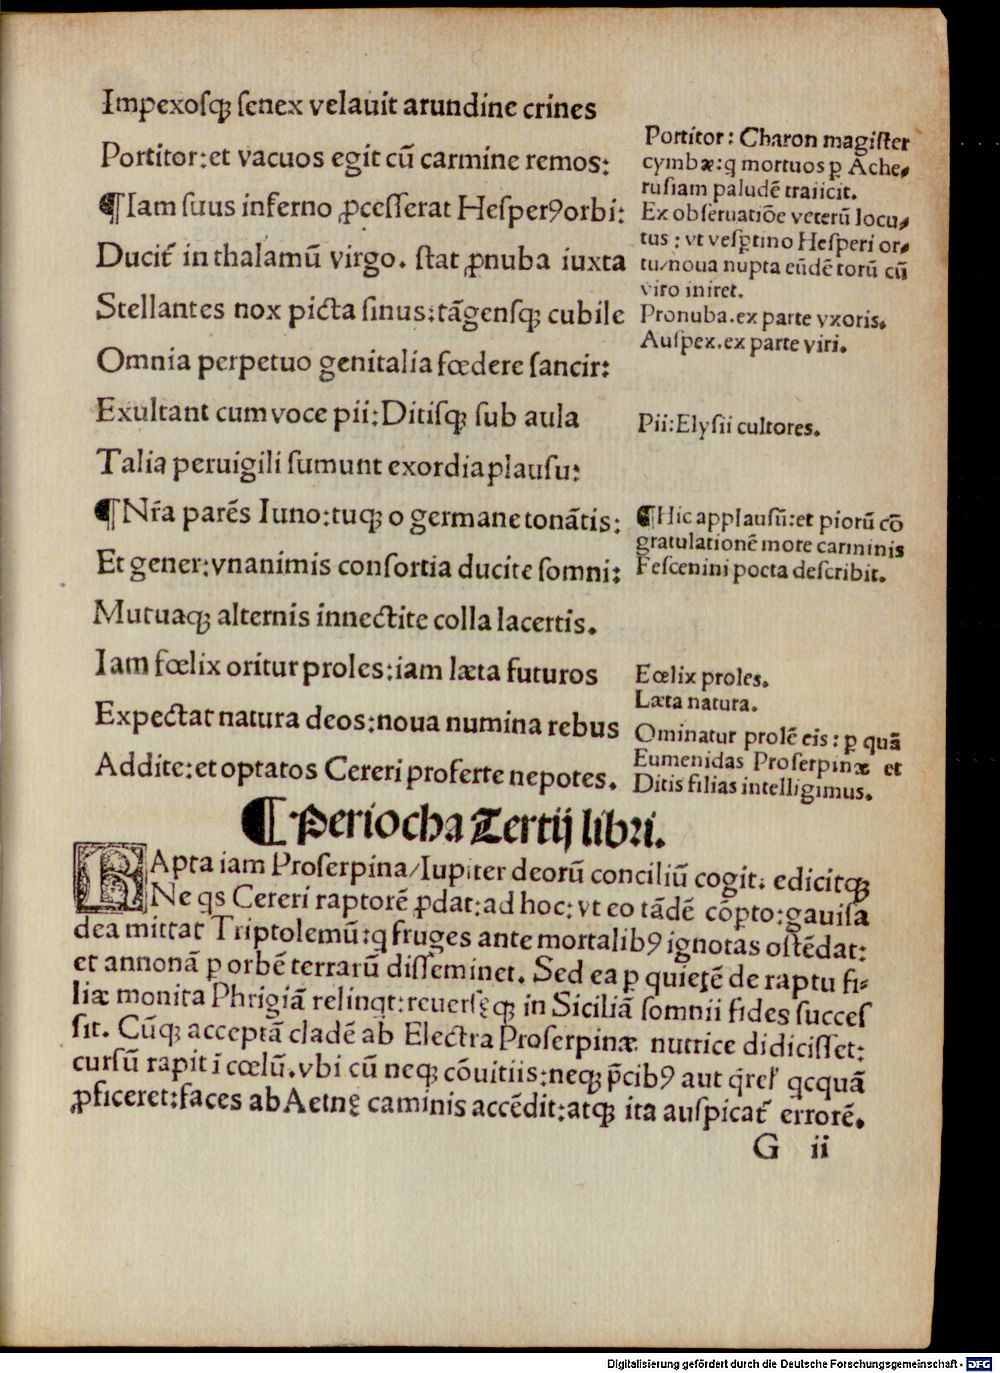 Impexosqꝫ senex velauit arundine crines
Portitor:et vacuos egit cũ carmine remos:
¶Iam suus inferno ꝓcesserat Hesperꝯorbi:
Ducit̃ in thalamũ virgo. stat ꝓnuba iuxta
Stellantes nox picta sinus:tãgensqꝫ cubile
Omnia perpetuo genitalia fœdere sancir:
Exultant cum voce pii:Ditisqꝫ sub aula
Talia peruigili sumunt exordia plausu:
¶Nr̃a parẽs Iuno:tuqꝫ o germane tonãtis:
Et gener:vnanimis consortia ducite somni:
Mutuaqꝫ alternis innectite colla lacertis.
Iam fœlix oritur proles:iam læta futuros
Expectat natura deos:noua numina rebus
Addite:et optatos Cereri proferte nepotes.
Portitor: Charon magister
cymbæ:q mortuos ꝑ Ache,
rusiam paludẽ traiicit.
Ex obseruatiõe veterũ locu,
tus: vt vesꝑtino Hesperi or,
tu/noua nupta eũdẽ torũ cũ
viro iniret.
Pronuba.ex parte vxoris.
Auspex.ex parte viri.
Pii:Elysii cultores.
¶Hic applausũ:et piorũ cõ
gratulationẽ more carminis
Fescenini poeta describit.
Eœlix proles.
Læta natura.
Ominatur prolẽ eis: ꝑ quã
Eumenidas Proserpinæ et
Ditis filias intelligimus.
¶Periocha Tertij libri.
RApta iam Proserpina/Iupiter deorũ conciliũ cogit: edicitqꝫ
Ne qs Cereri raptorẽ ꝓdat:ad hoc: vt eo tãdẽ cõpto:gauisa
dea mittat Triptolemũ:q fruges ante mortalibꝯ ignotas ostẽdat:
et annonã ꝑ orbẽ terrarũ disseminet. Sed ea ꝑ quietẽ de raptu fi-
liæ monita Phrigiã relinqt:reuersęqꝫ in Siciliã somnii fides succes
sit. Cũqꝫ acceptã cladẽ ab Electra Proserpinæ nutrice didicisset:
cursũ rapit ĩ cœlũ.vbi cũ neqꝫ cõuitiis:neqꝫ p̃cibꝯ aut q̃rel' qcquã
ꝓficeret:faces ab Aetnę caminis accẽdit:atqꝫ ita auspicat̃ errorẽ.
G ii
Digitalisierung gefördert durch die Deutsche Forschungsgemeinschaft - DFG